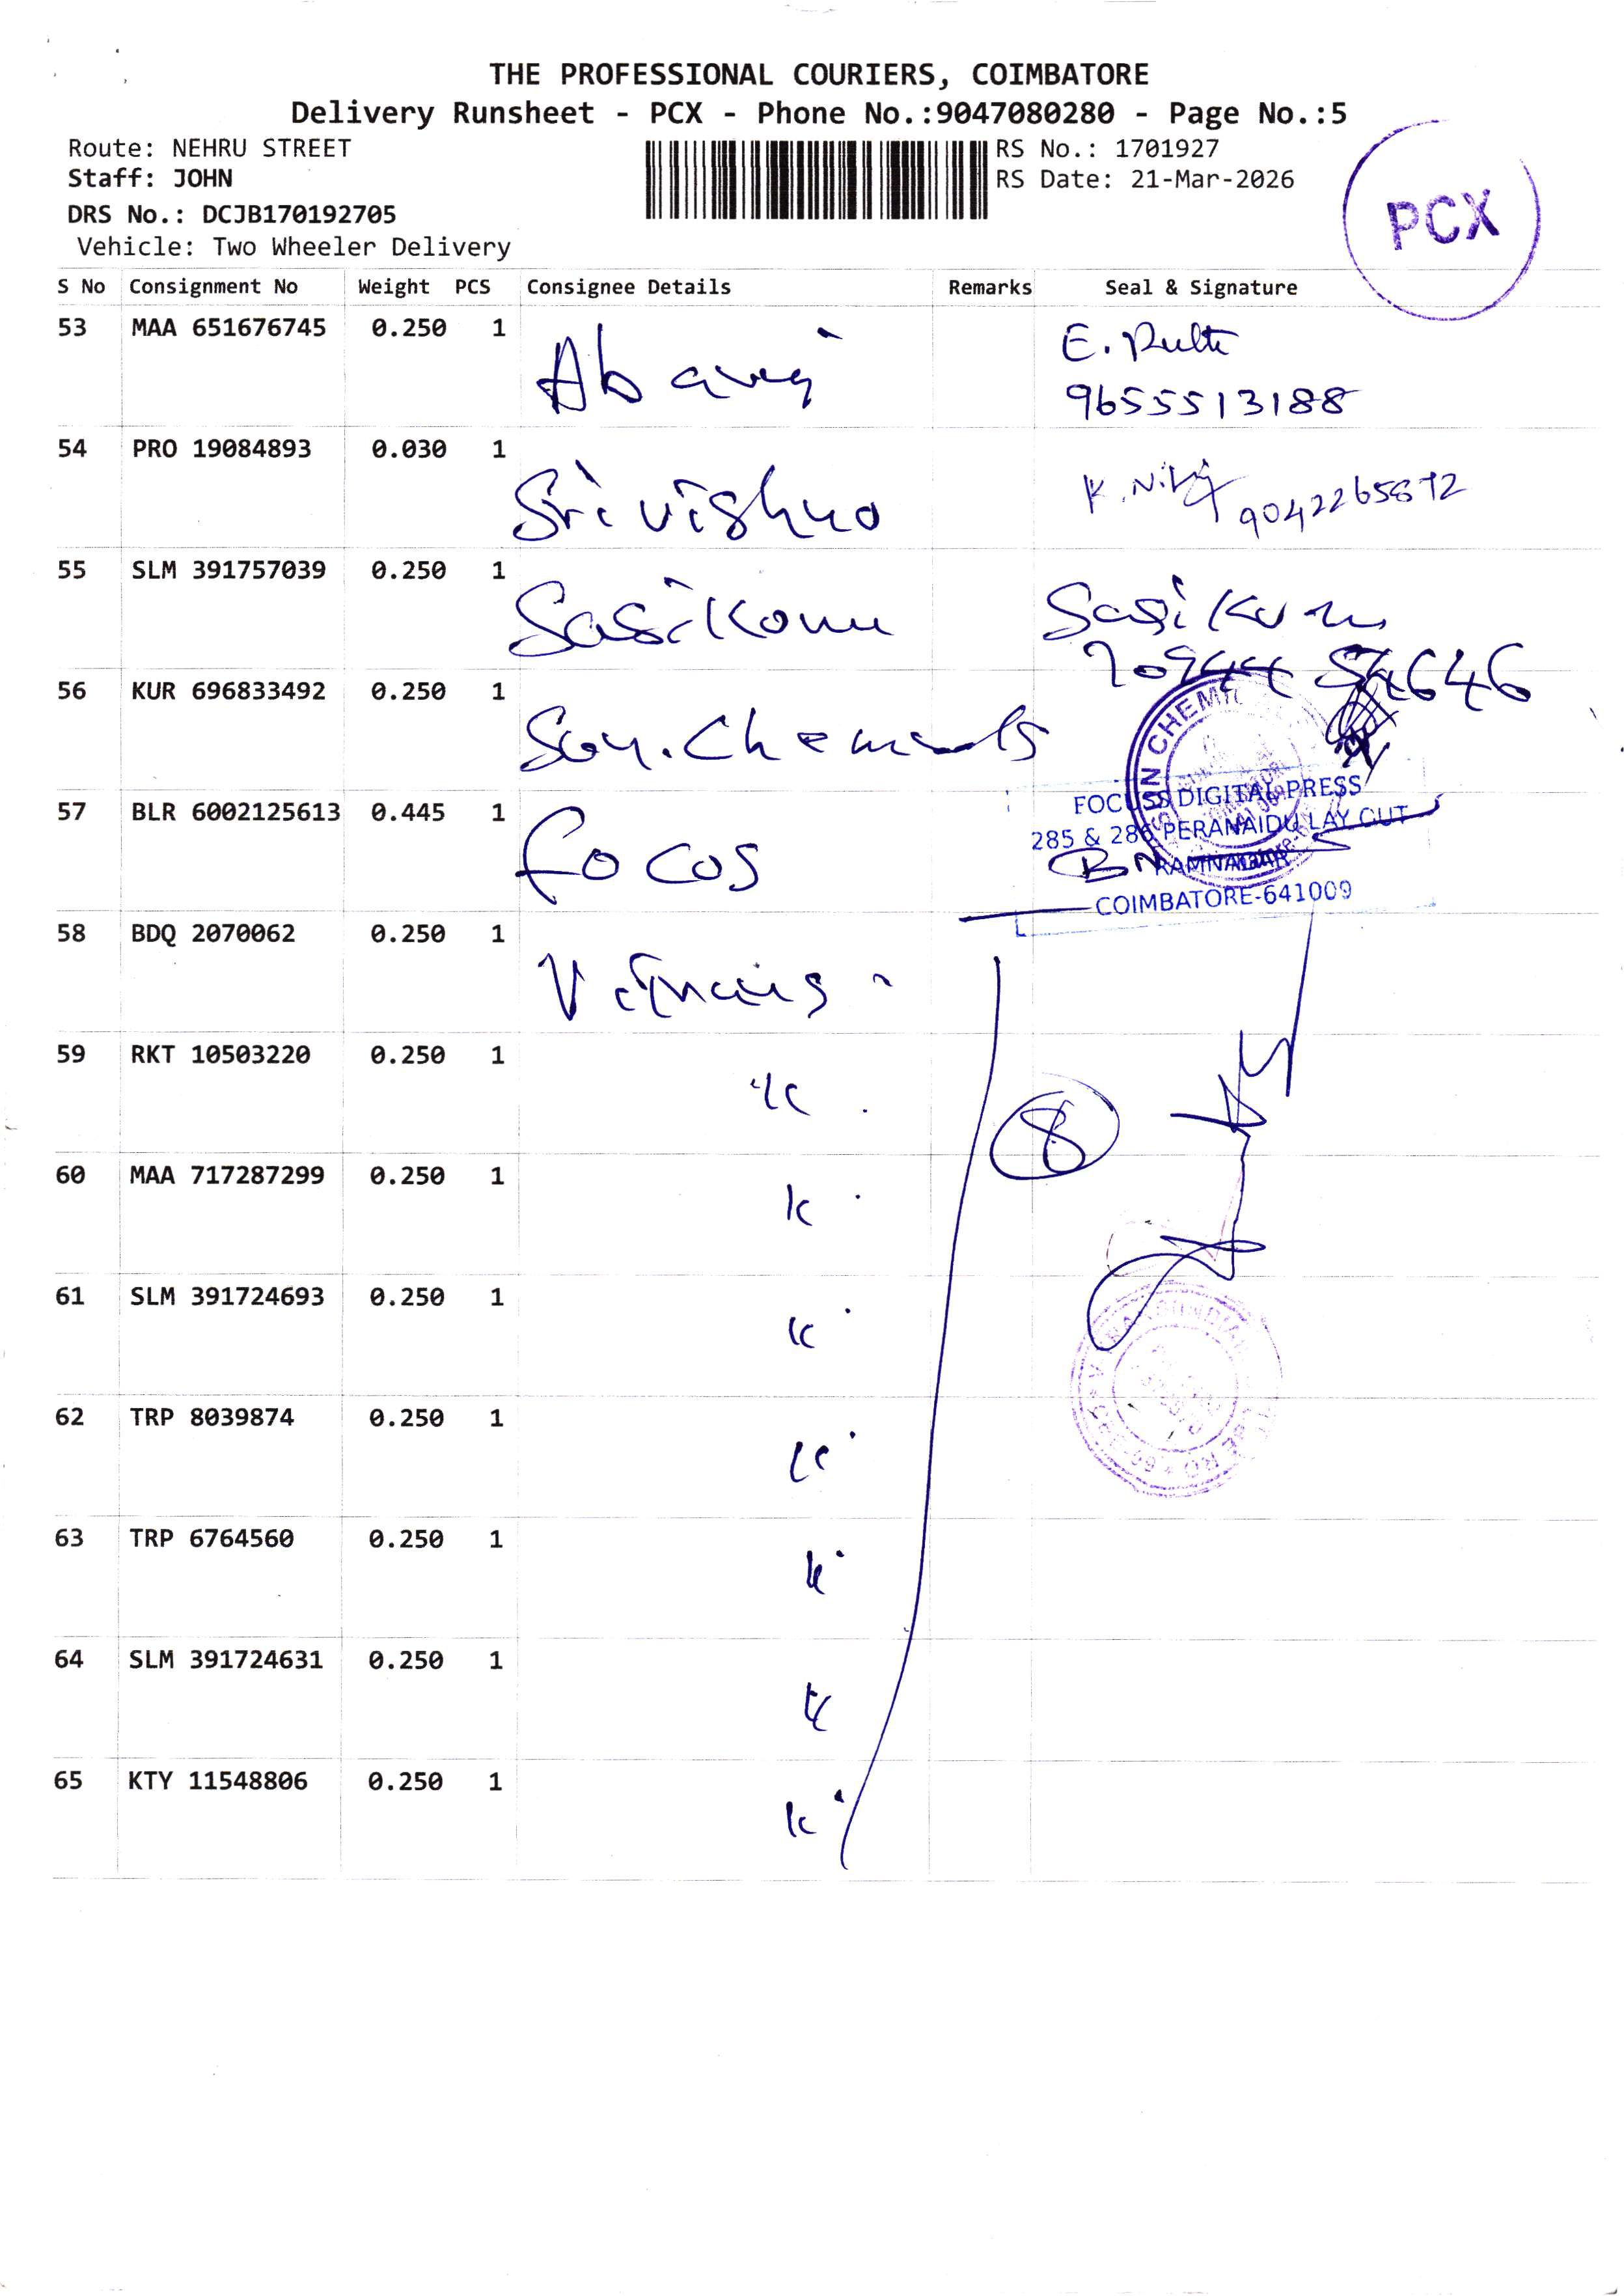 THE PROFESSIONAL COURIERS, COIMBATORE
Delivery Runsheet - PCX - Phone No.:9047080280 - Page No.:5
Route: NEHRU STREET
RS No.: 1701927
Staff: JOHN
RS Date: 21-Mar-2026
PCX
DRS No.: DCJB170192705
Vehicle: Two Wheeler Delivery
S No Consignment No Weight PCS Consignee Details Remarks Seal & Signature
53 MAA 651676745 0.250 1
E.
9655513188
54 PRO 19084893 0.030 1
Sri vishno
K.
55 SLM 391757039 0.250 1
Sasikom
Sasikum
56 KUR 696833492 0.250 1
CHEMI
57 BLR 6002125613 0.445 1
focos
FOCUSS DIGITAL PRESS
285 & 286 PERANAIDU LAY OUT
RAMNAGAR
COIMBATORE-641009
58 BDQ 2070062 0.250 1
59 RKT 10503220 0.250 1
8
60 MAA 717287299 0.250 1
61 SLM 391724693 0.250 1
62 TRP 8039874 0.250 1
63 TRP 6764560 0.250 1
64 SLM 391724631 0.250 1
65 KTY 11548806 0.250 1